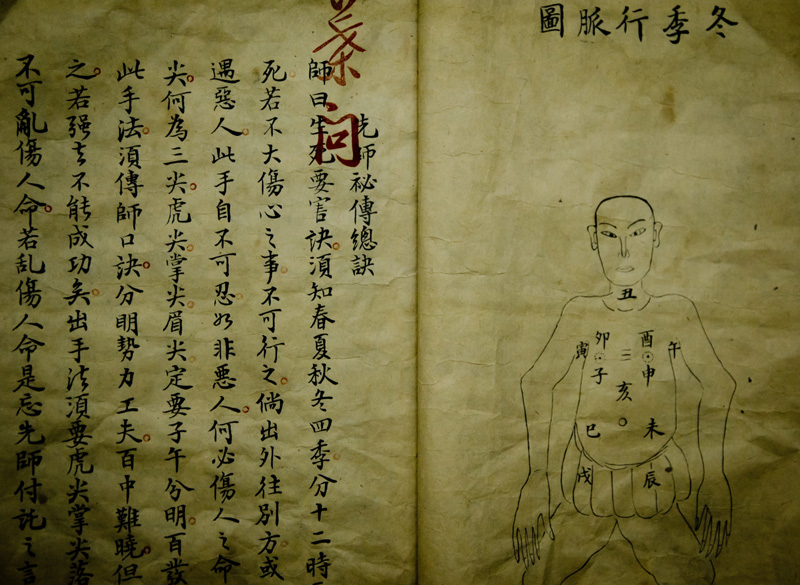 冬季行脈圖
丑
寅 卯 酉 午
子 三 申
亥
巳 未
戌 辰
葉問
先師祕傳總訣
師曰生死要害訣須知春夏秋冬四季分十二時
死若不大傷心之事不可行之倘出外往别方或
遇惡人此手自不可忍如非悪人何必傷人之命
尖何為三尖虎尖掌尖眉尖定要子午分明百發
此手法須傳師口訣分明勢力工夫百中難曉但
之若强去不能成功矣出手法須要虎尖掌尖落
不可亂傷人命若乱傷人命是忘先師付託之言